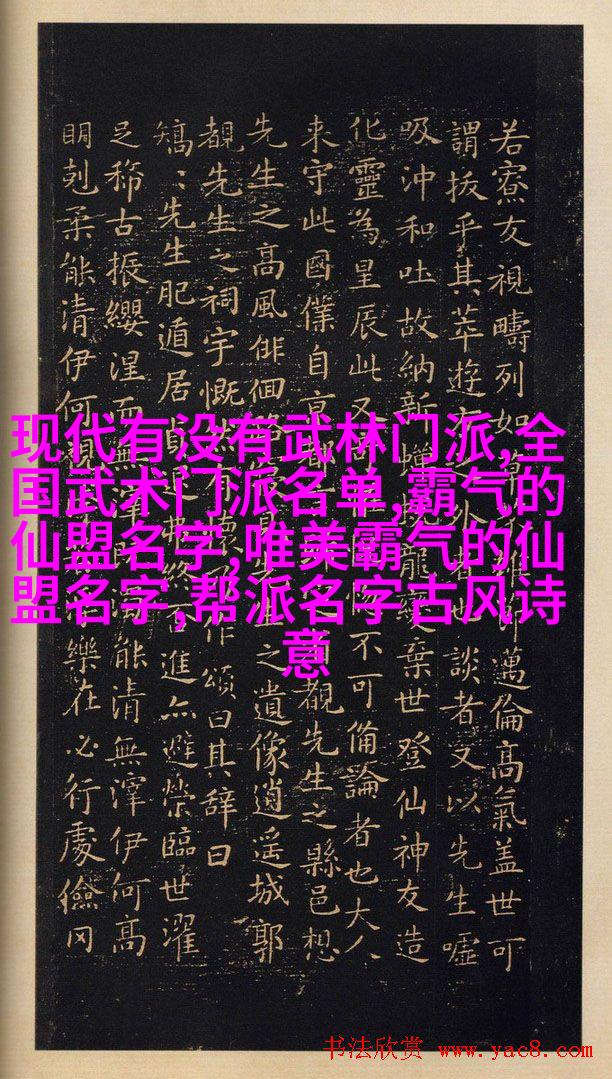 若寮友視疇列如草
邁倫高氣盖世可
謂拔乎其萃遊方之外者也談者又以先生噓
吸沖和吐故納新蟬蛻龍變棄世登仙神友造
化靈為星辰此又
不可備論者也大人
来守此國僕自京都
覩先生之縣邑想
先生之高風俳佪
之遺像逍遥城郭
覩先生之祠宇慨
作頌曰其辞曰
矯〻先生肥遁居貞退弗終否進亦避榮臨世濯
足稀古振纓涅而無滓
能清無滓伊何高
明剋柔能清伊何視
樂在必行處儉罔
现代有没有武林门派,全
国武术门派名单,霸气的
仙盟名字,唯美霸气的仙
盟名字,帮派名字古风诗
意
书法欣赏 www.yac8.com